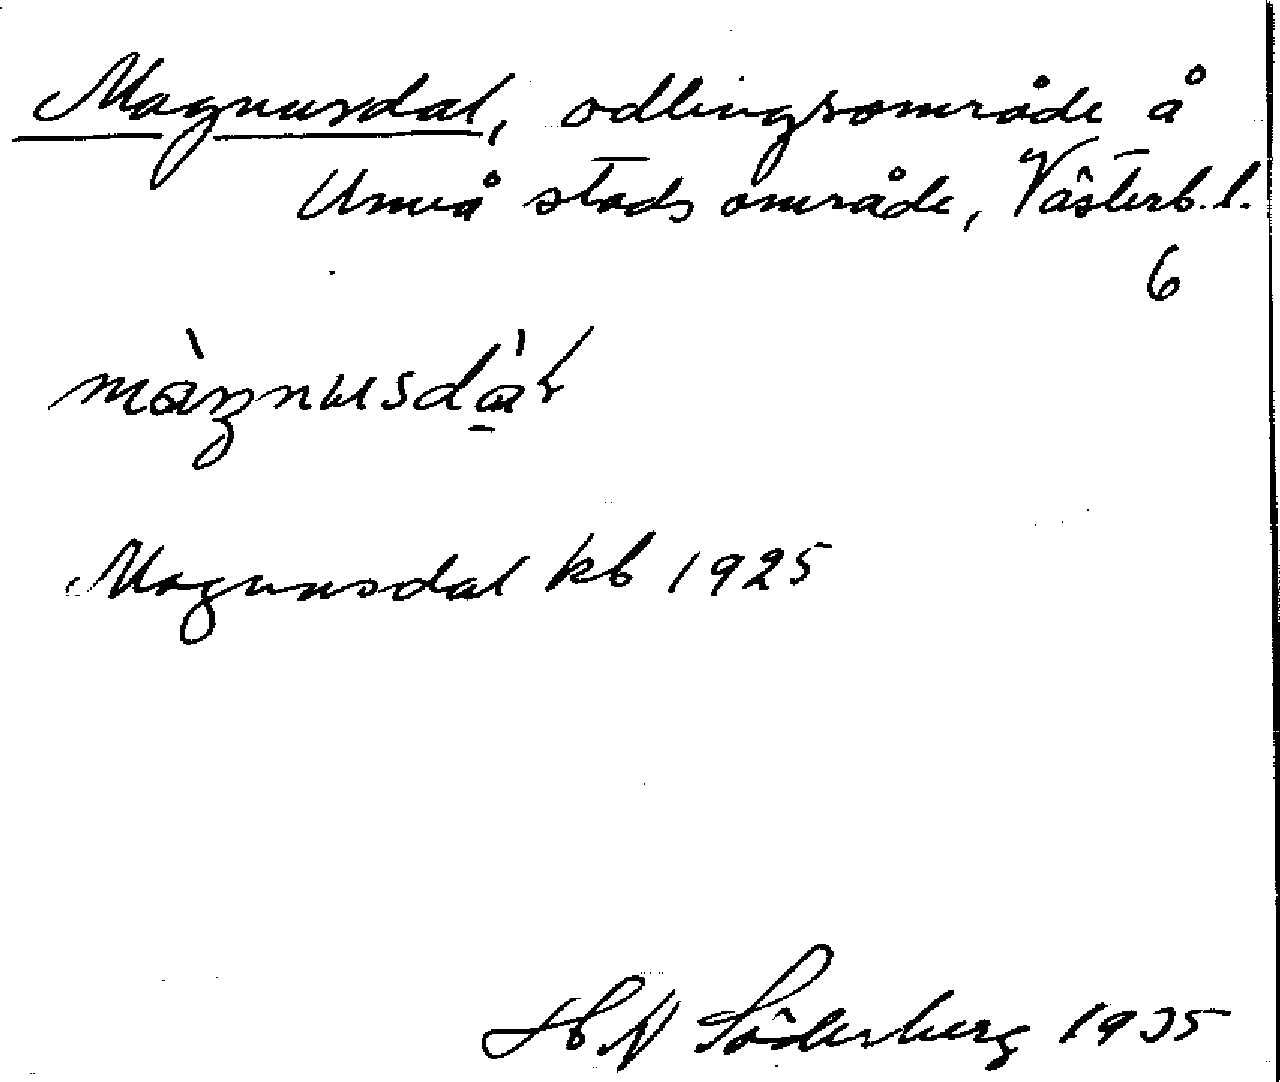 Magnusdal, odlingsområde å
Umeå stads område, Västerb. l.
6
Magnusdal kb 1925
Söderberg 1935